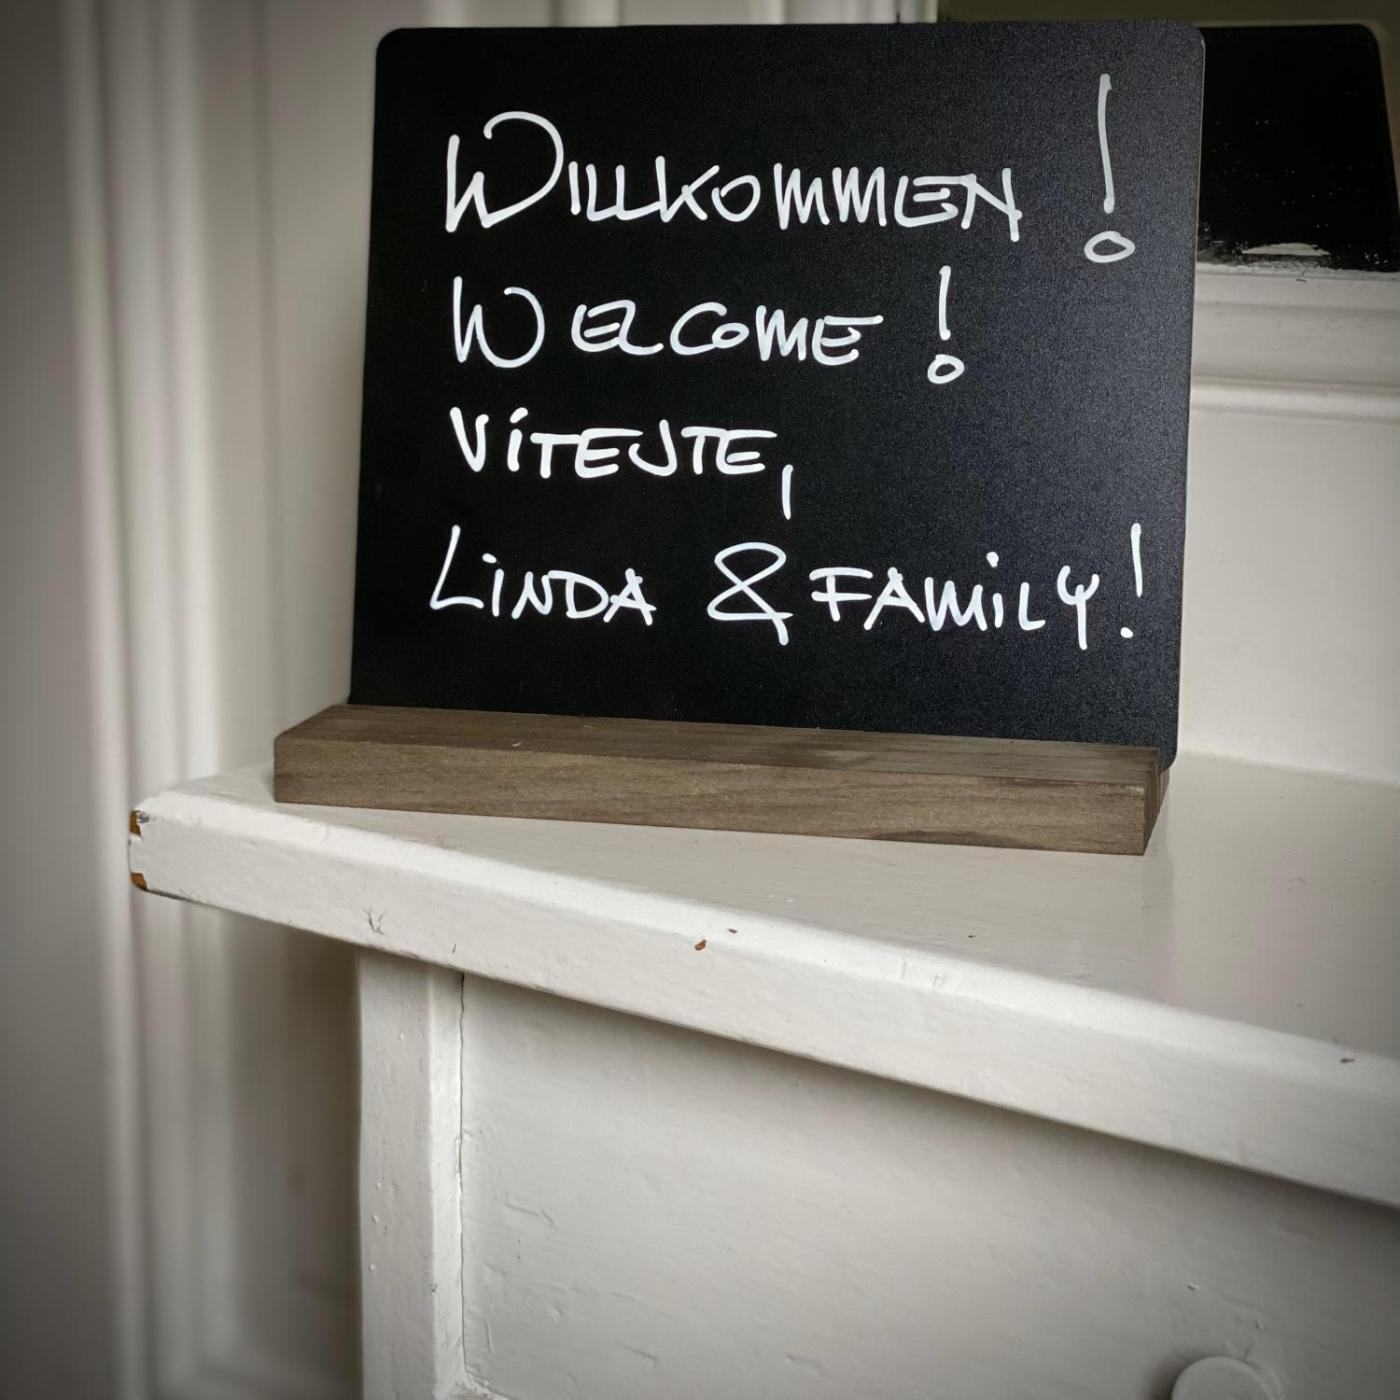 WILLKOMMEN!
WELCOME!
VÍTEJTE,
LINDA & FAMILY!